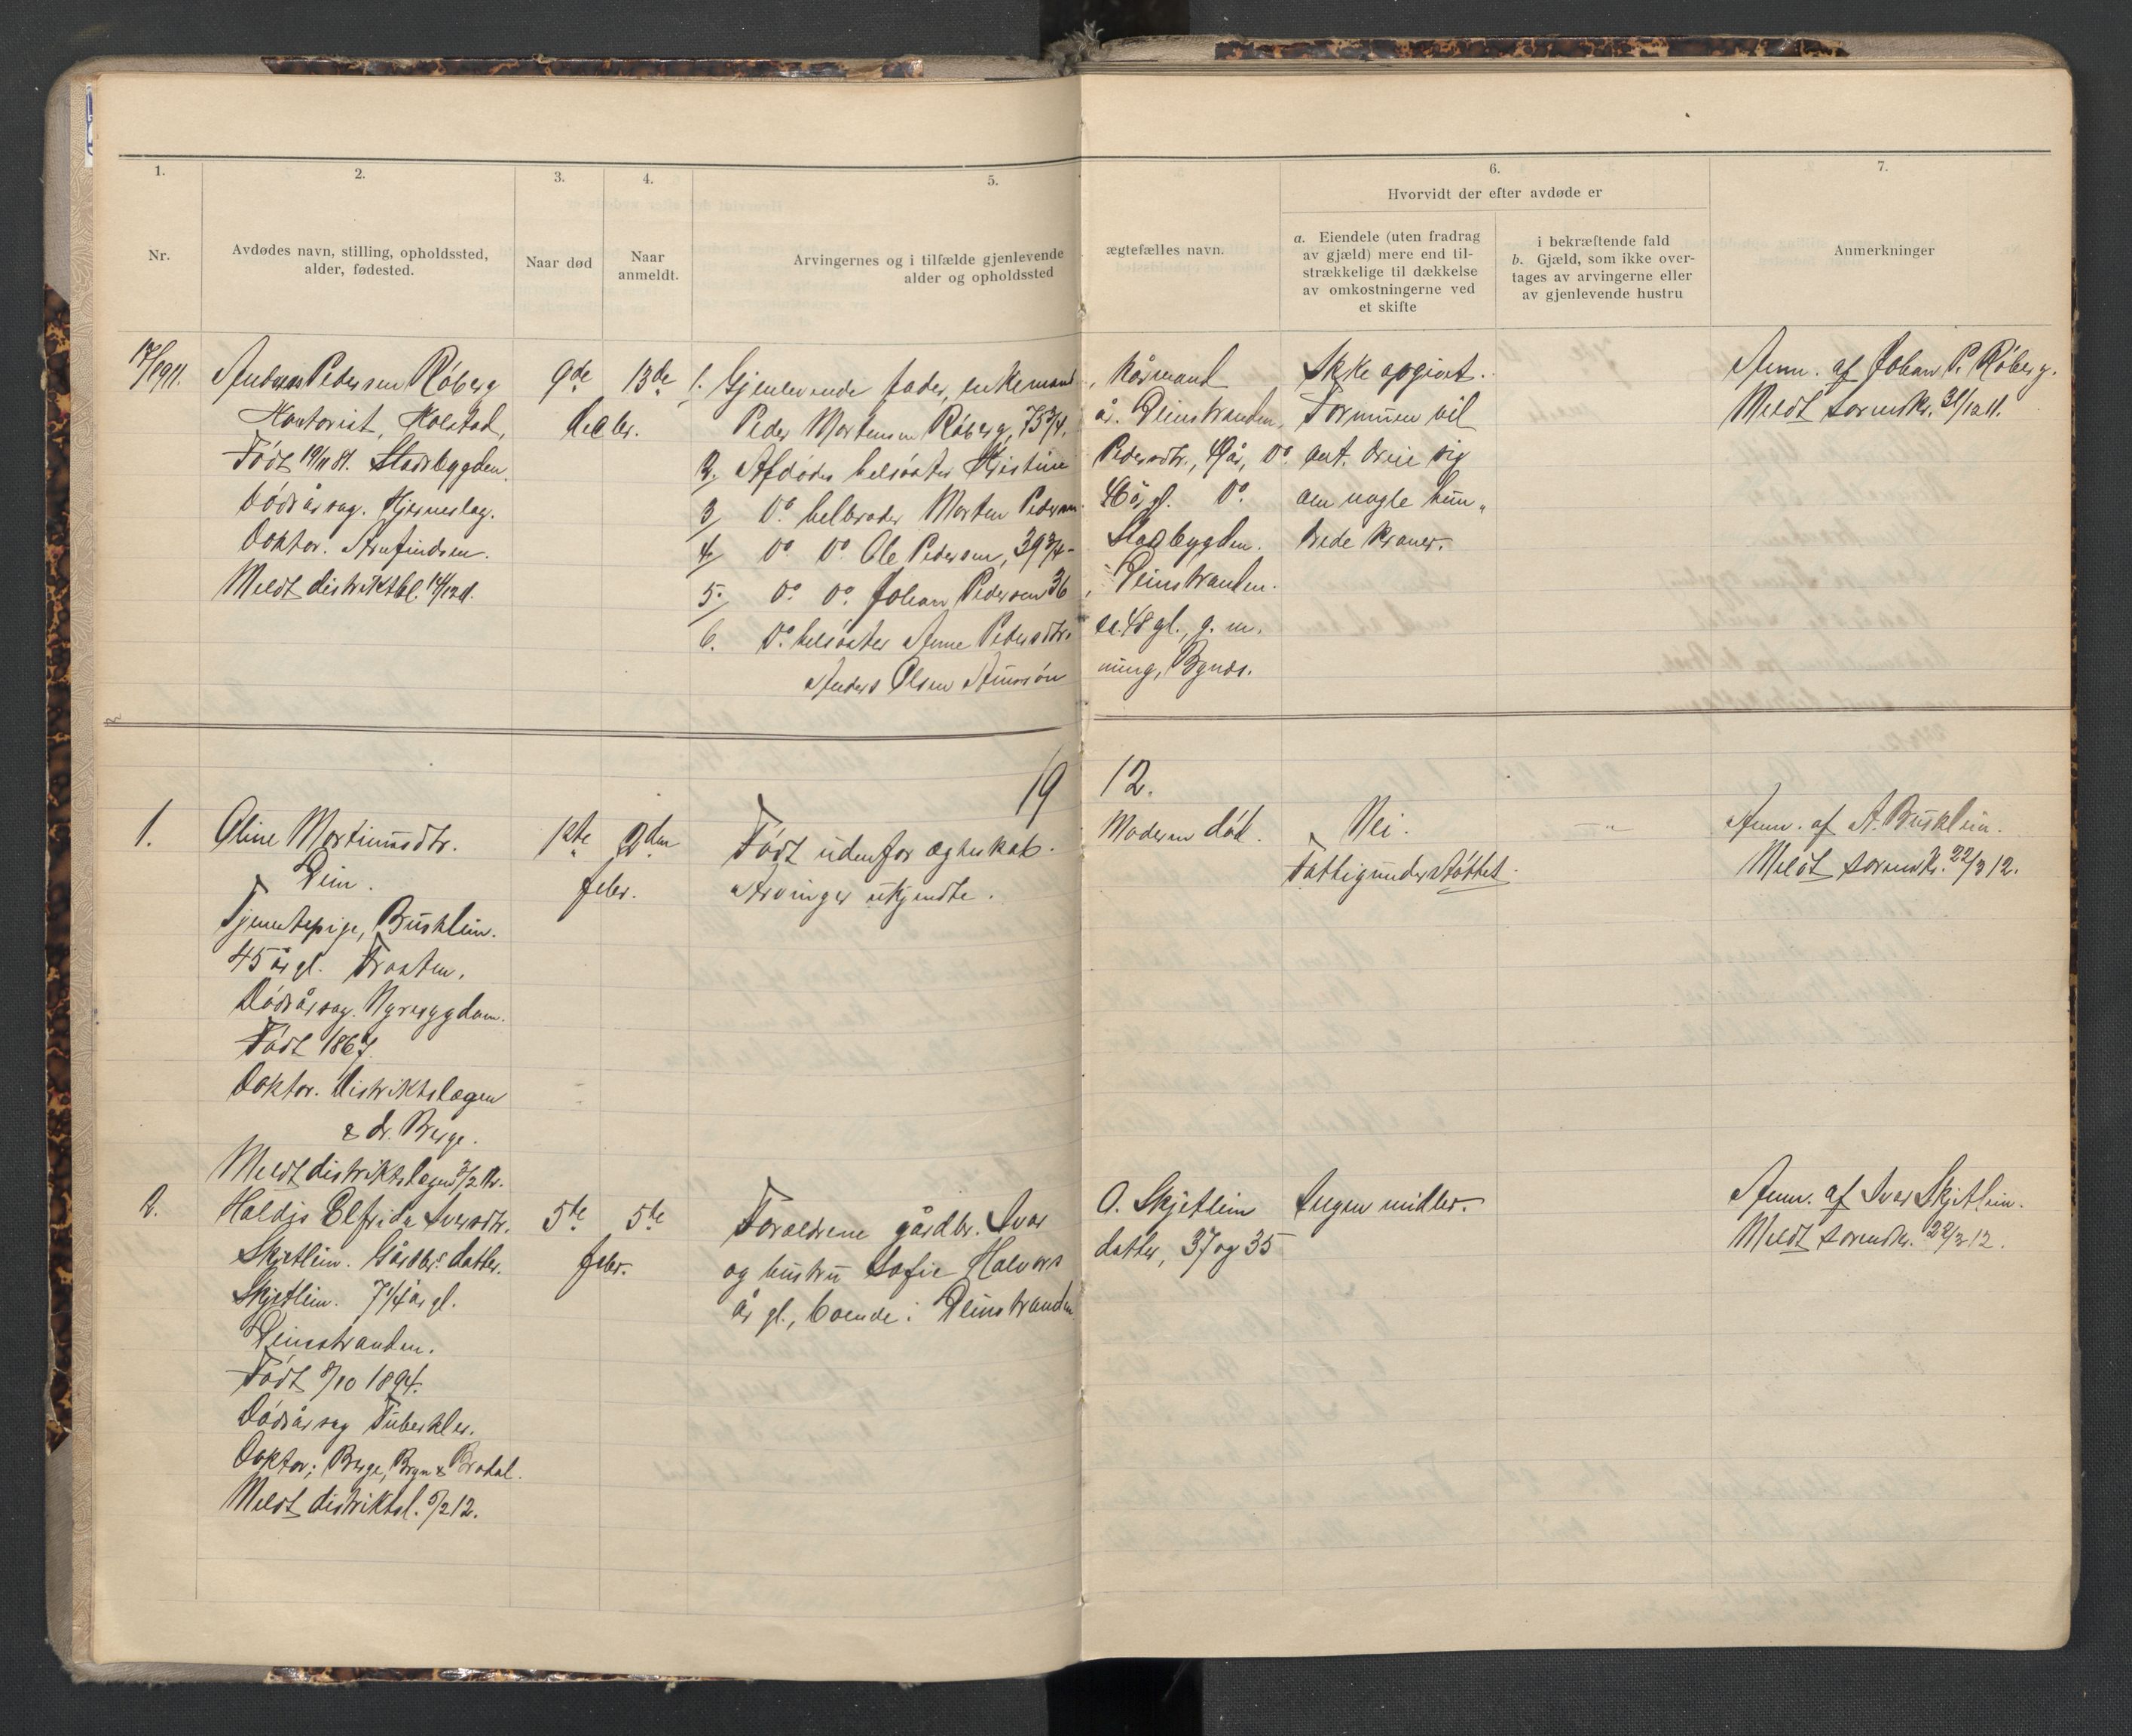 1.
2.
3.
4.
5.
6.
7.
Hvorvidt der efter avdøde er
Nr.
Avdødes navn, stilling, opholdssted,
alder, fødested.
Naar død
Naar
anmeldt.
Arvingernes og i tilfælde gjenlevende
alder og opholdssted
ægtefælles navn.
a. Eiendele (uten fradrag
av gjæld) mere end til-
strækkelige til dækkelse
av omkostningerne ved
et skifte
i bekræftende fald
b. Gjæld, som ikke over-
tages av arvingerne eller
av gjenlevende hustru
Anmerkninger
17/1911.
Andreas Pedersen Røberg
Kontorist, Kolstad,
Født 19/11 81. Stadsbygden.
Dødsårsag. Hjerneslag.
Doktor. Arnfindsen.
Meldt distriktsl. 14/12 11.
9de
13de
decbr.
1. Gjenlevende fader, enkemand, kårmand
Peder Mortensen Røberg, 75 3/4 år. Leinstranden.
2. Afdødes helsøster Kristine Pedersdtr., år, do.
3. do. helbroder Morten Pedersen 46 år gl. do.
4. do. do. Ole Pedersen, 39 3/4 - Stadsbygden.
5. do. do. Johan Pedersen 36, Leinstranden.
6. do. helsøster Anne Pedersdtr. 48 gl., g. m.
Anders Olsen Bynes.
Ikke opgivet.
Formuen vil
ant. dreie sig
om nogle hun„
drede kroner.
Anm. af Johan P. Røberg.
Meldt sorenskr. 31/12 11.
1912.
1.
Oline Martinusdtr.
Lein.
Tjenestepige, Busklein.
45 år gl. Frosten.
Dødsårsag. Nyresygdom.
Født 1867.
Doktor. Distriktslægen
& dr. Berge.
Meldt distriktslægen 3/2 12.
1ste
2den
febr.
Født udenfor ægteskab. Moderen død.
Arvinger ukjendte.
Nei.
Fattigunderstøttet.
— „ —
Anm. af A. Busklein.
Meldt sorenskr. 22/3 12.
2.
Haldis Elfrida Iversdtr.
Skjetlein. Gårdbrs datter.
Skjetlein. 7 1/4 år gl.
Leinstranden.
Født 8/10 1894.
Dødsårsag Tuberkler.
Doktor; Berge, Bryn & Brodal.
Meldt distriktsl. 5/2 12.
5te
5te
febr.
Forældrene gårdbr. Ivar O. Skjetlein
og hustru Sofie Halvorsdatter, 37 og 35
år gl., boende i Leinstranden
Ingen midler.
Anm. af Ivar Skjetlein.
Meldt sorenskr. 22/3 12.